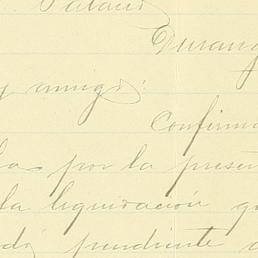 Palacio
Durang
y amigo:
Confirma
la por la presen
la liquidación q
pendiente